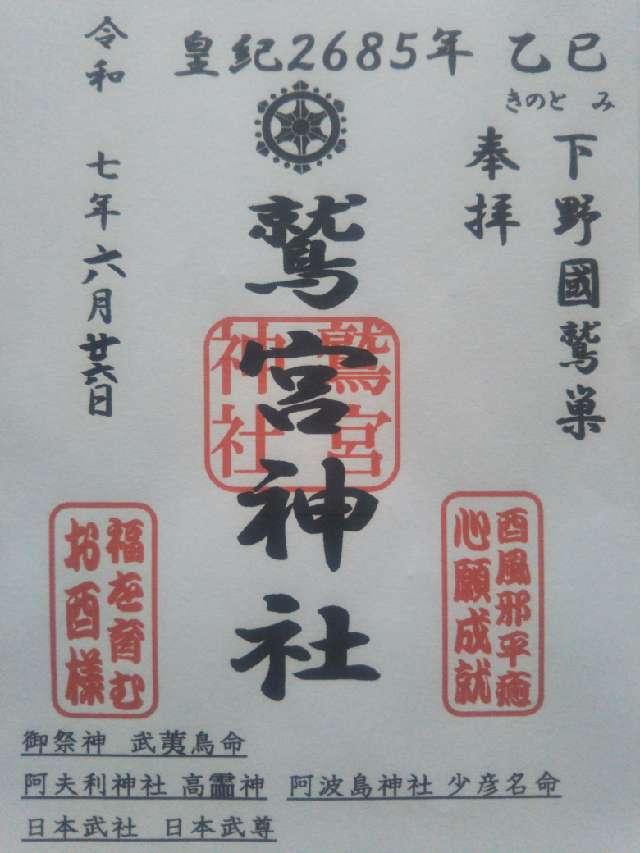 皇紀2685年 乙巳
きのと み
下野國鷲巣
奉拝
鷲宮神社
鷲宮
神社
令和 七年六月廿六日
酉風邪平癒
心願成就
福を育む
お酉様
御祭神 武夷鳥命
阿夫利神社 高龗神 阿波島神社 少彦名命
日本武社 日本武尊